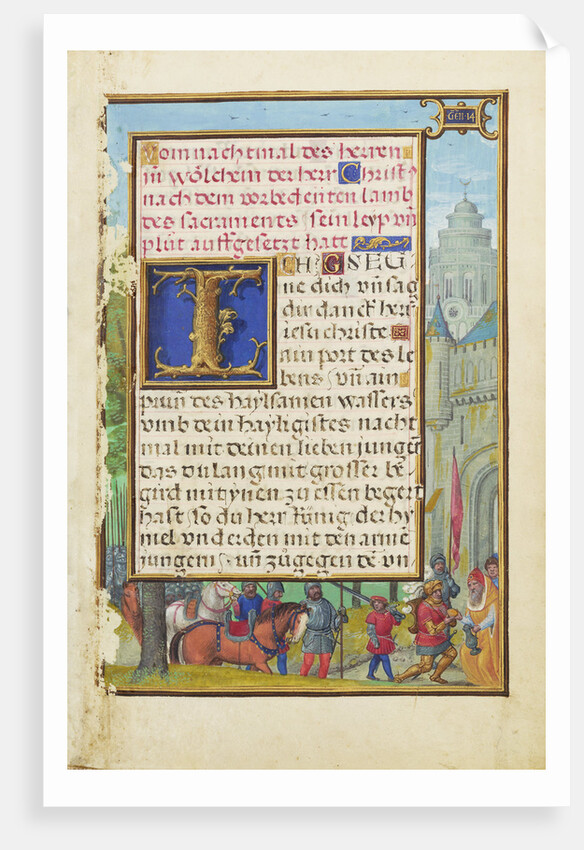 GEN·14
Vom nachtmal des herren
in wölchem der herr Christ9
nach dem vorbedeuten lamb
des sacraments sein leyp vn̄
plůt auffgesetzt hatt
ICH GSEG
ne dich vn̄ sag
dir danck herr
iesu christe
ain port des le
bens vn̄ ain
prun̄ des haylsamen wassers
vmb dein hayligistes nacht
mal mit deinen lieben jungen̄
das du lang mit grosser be
gird mit ynen zu essen begert
hast so du herr Künig der hy
mel vnd erden mit den arme
jungern vn̄ zůgegen de vn